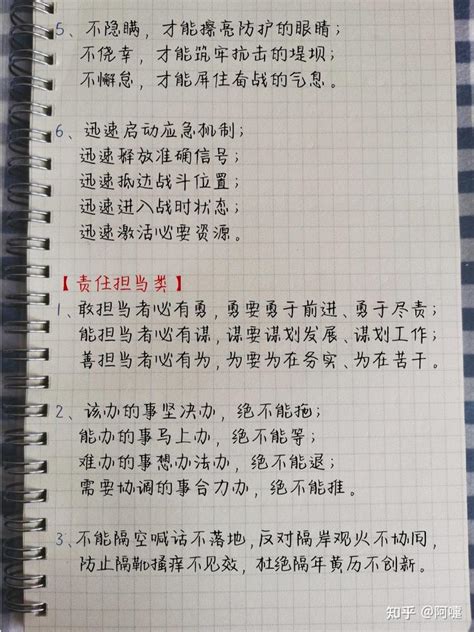 5、不隐瞒，才能擦亮防护的眼睛；
不侥幸，才能筑牢抗击的堤坝；
不懈怠，才能屏住奋战的气息。
6、迅速启动应急机制；
迅速释放准确信号；
迅速抵达战斗位置；
迅速进入战时状态；
迅速激活必要资源。
【责任担当类】
1、敢担当者必有勇，勇要勇于前进、勇于尽责；
能担当者必有谋，谋要谋划发展、谋划工作；
善担当者必有为，为要为在务实、为在苦干。
2、该办的事坚决办，绝不能拖；
能办的事马上办，绝不能等；
难办的事想办法办，绝不能退；
需要协调的事合力办，绝不能推。
3、不能隔空喊话不落地，反对隔岸观火不协同，
防止隔靴搔痒不见效，杜绝隔年黄历不创新。
知乎 @阿嚏